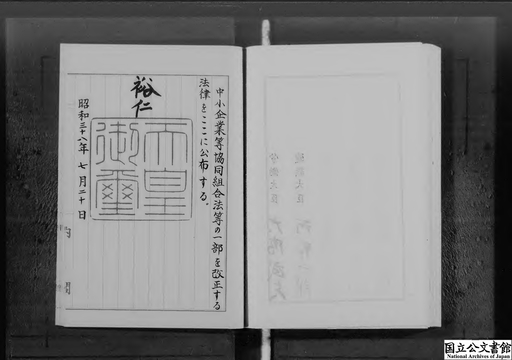 中小企業等協同組合法等の一部を改正する
法律をここに公布する。
裕仁
天皇
御璽
昭和三十八年七月二十日
国立公文書館
National Archives of Japan